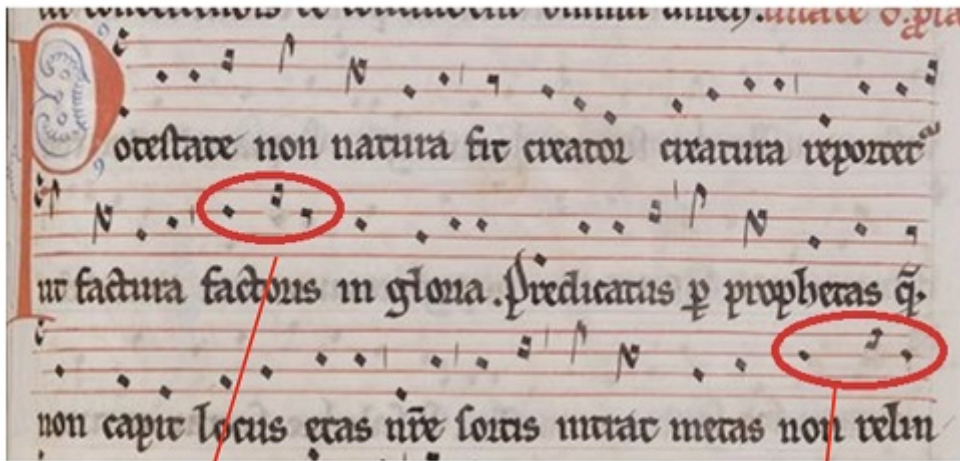 Potestate non natura fit creator creatura reportetᷓ
ut factura factoris in gloria. Predicatus ꝑ prophetas q̃
non capit locus etas nr̃e sortis intrat metas non relin